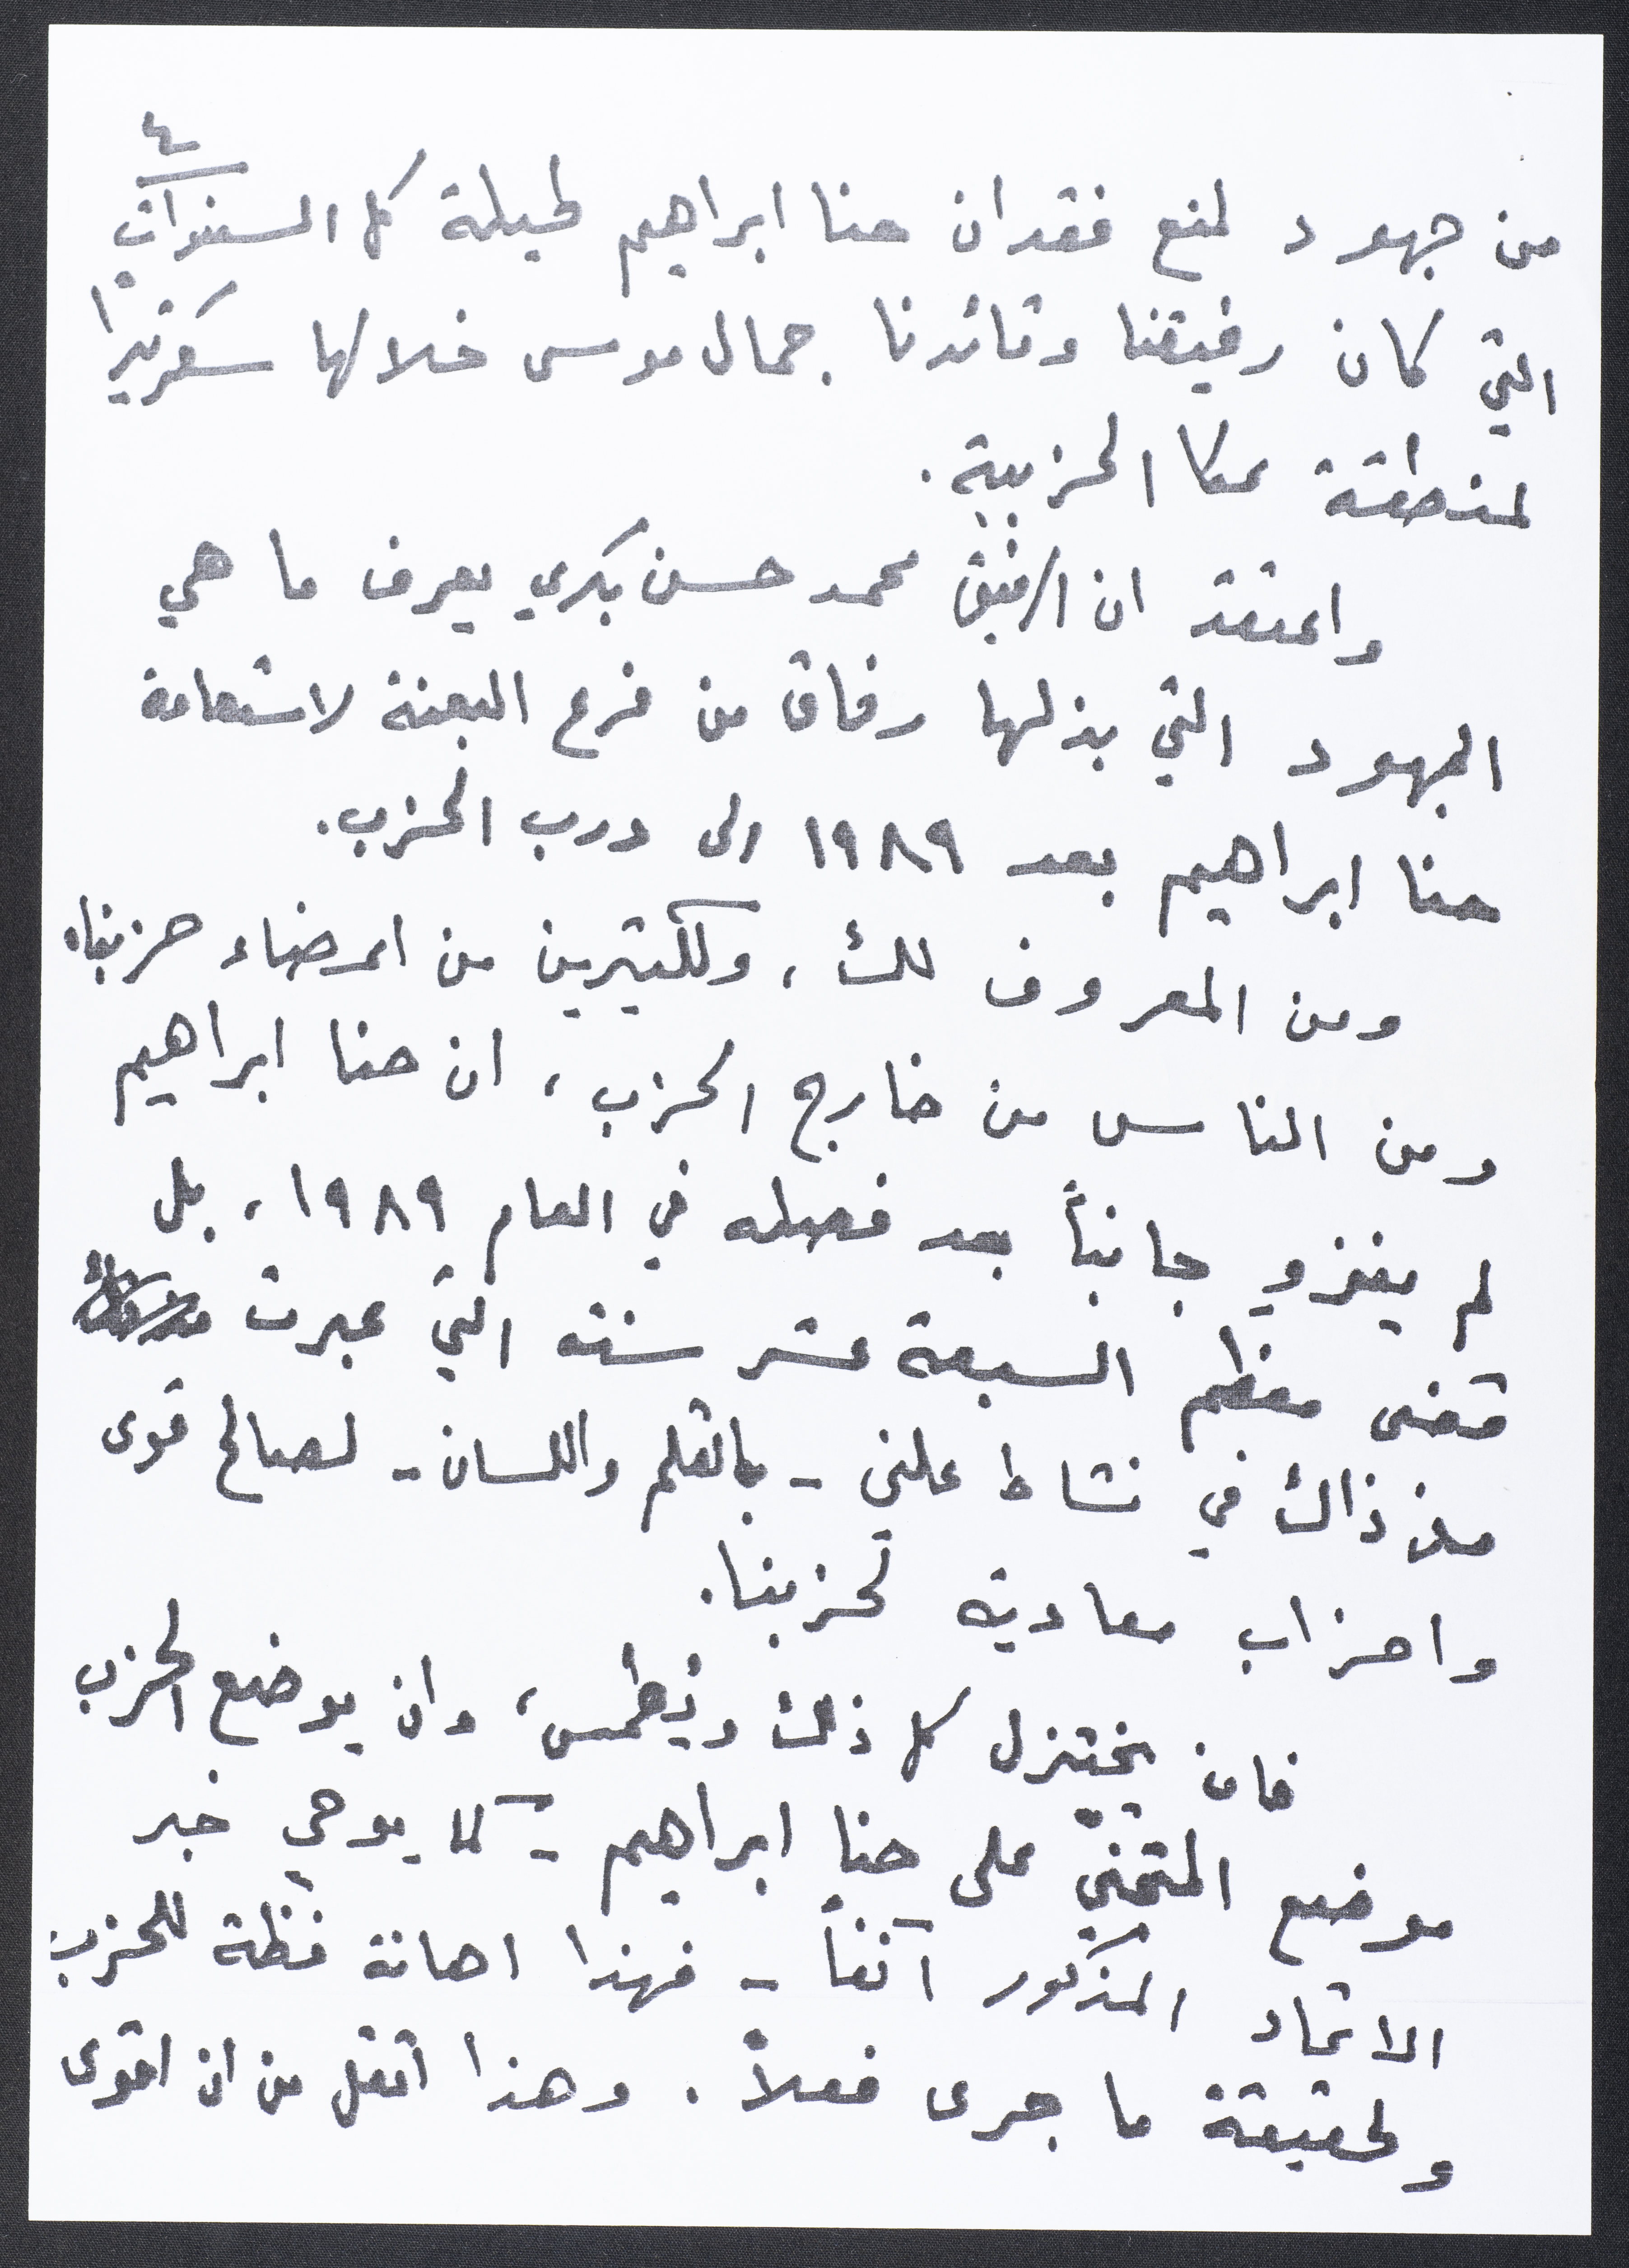 ٤
من جهود لمنع فقدان حنا ابراهيم طيلة كل السنوات
التي كان رفيقنا وقائدنا جمال موسى خلالها سكرتيرا
لمنطقة عكا الحزبية.
واعتقد ان الرفيق محمد حسن بكري يعرف ما هي
الجهود التي بذلها رفاق من فرع البعنة لاستعادة
حنا ابراهيم بعد ١٩٨٩ الى درب الحزب.
ومن المعروف لك، وللكثيرين من اعضاء حزبنا،
ومن الناس من خارج الحزب، ان حنا ابراهيم
لم ينزو جانباً بعد فصله في العام ١٩٨٩، بل
قضى معظم السبعة عشر سنة التي عبرت
منذ ذاك في نشاط علني - بالقلم واللسان - لصالح قوى
واحزاب معادية لحزبنا.
فان يختزل كل ذلك ويُطمس، وان يوضع الحزب
موضع المتجنّي على حنا ابراهيم - كما يوحي خبر
الاتحاد المذكور آنفاً - فهذا اهانة فظّة للحزب
ولحقيقة ما جرى فعلاً. وهذا اثقل من ان اقوى